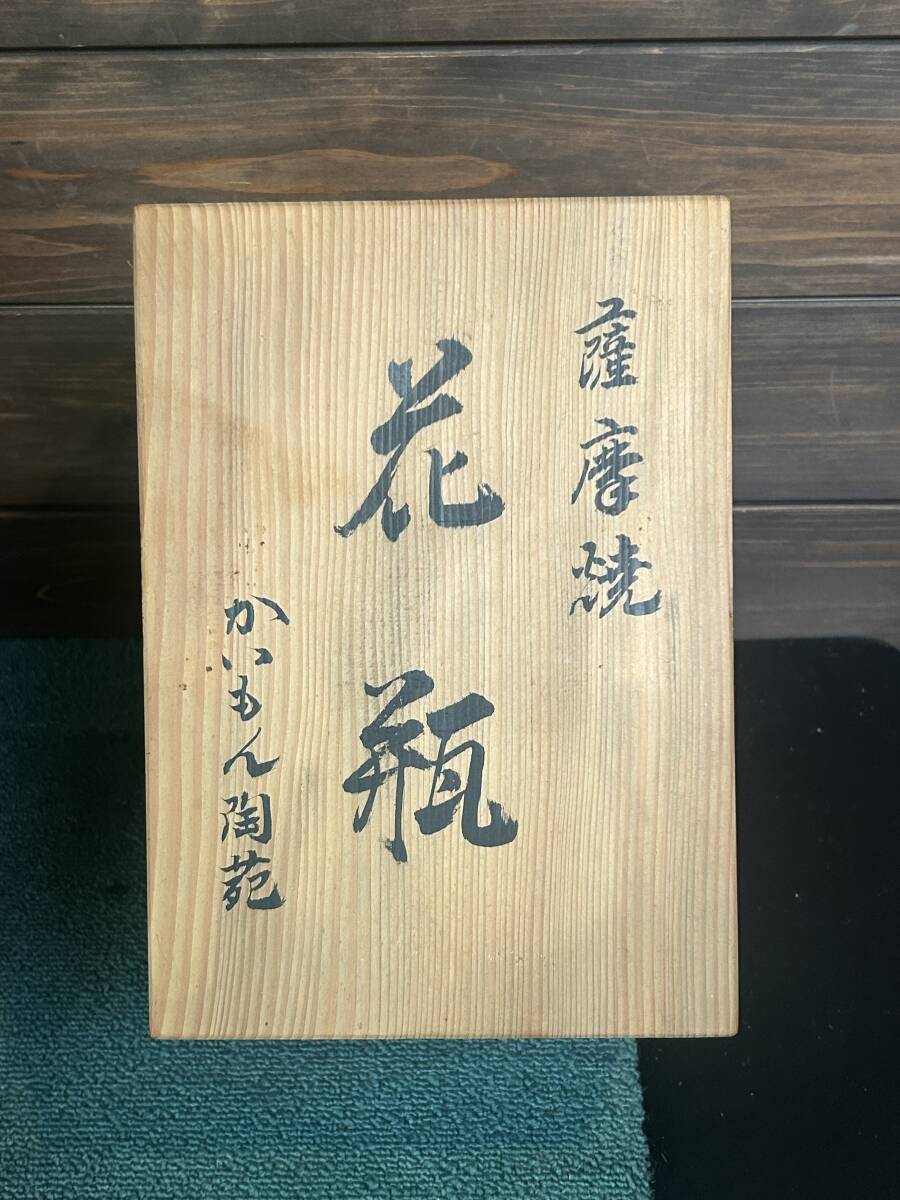 薩摩焼
花瓶
かいもん陶苑